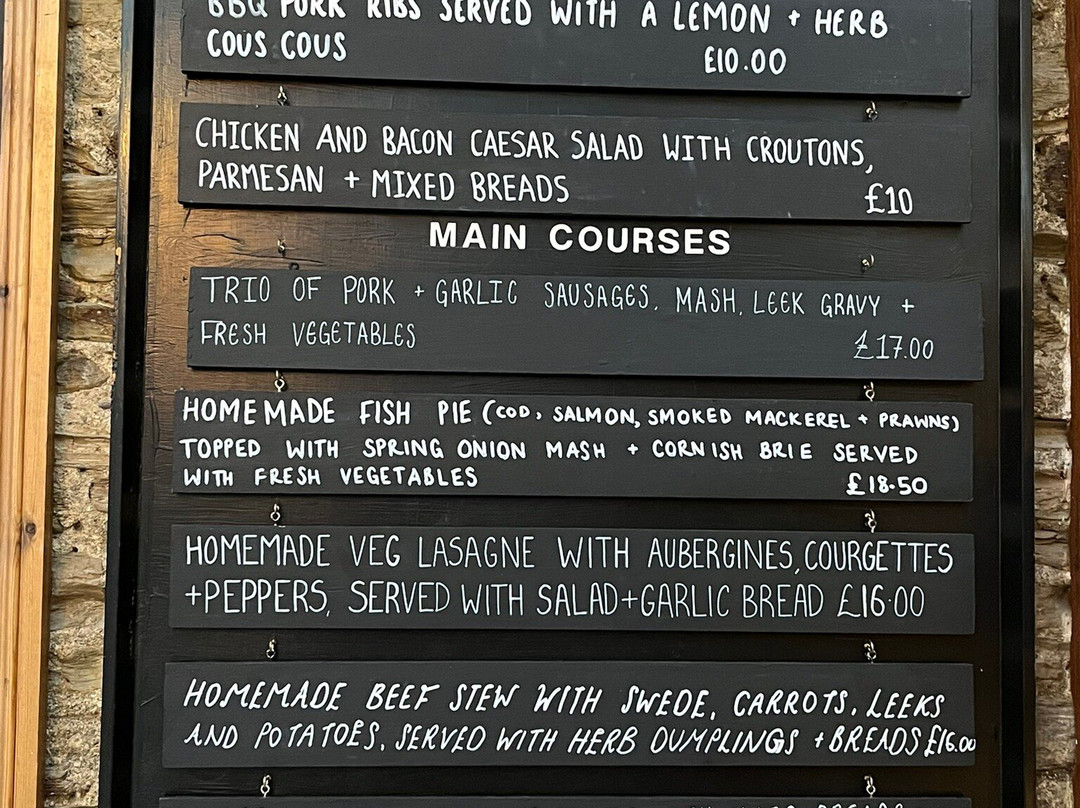 BBQ PORK RIBS SERVED WITH A LEMON + HERB
COUS COUS £10.00
CHICKEN AND BACON CAESAR SALAD WITH CROUTONS,
PARMESAN + MIXED BREADS £10
MAIN COURSES
TRIO OF PORK + GARLIC SAUSAGES, MASH, LEEK GRAVY +
FRESH VEGETABLES £17.00
HOMEMADE FISH PIE (COD, SALMON, SMOKED MACKEREL + PRAWNS)
TOPPED WITH SPRING ONION MASH + CORNISH BRIE SERVED
WITH FRESH VEGETABLES £18.50
HOMEMADE VEG LASAGNE WITH AUBERGINES, COURGETTES
+ PEPPERS, SERVED WITH SALAD + GARLIC BREAD £16.00
HOMEMADE BEEF STEW WITH SWEDE, CARROTS, LEEKS
AND POTATOES, SERVED WITH HERB DUMPLINGS + BREADS £16.00